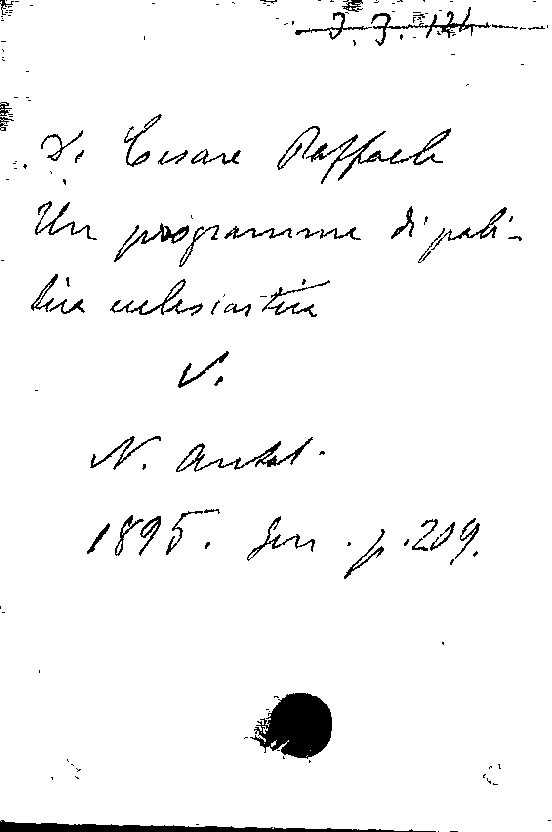 J. J. 124
De Cesare Raffaele
Un programma di poli-
tica ecclesiastica
V.
N. Antol.
1895. Gen. p. 209.